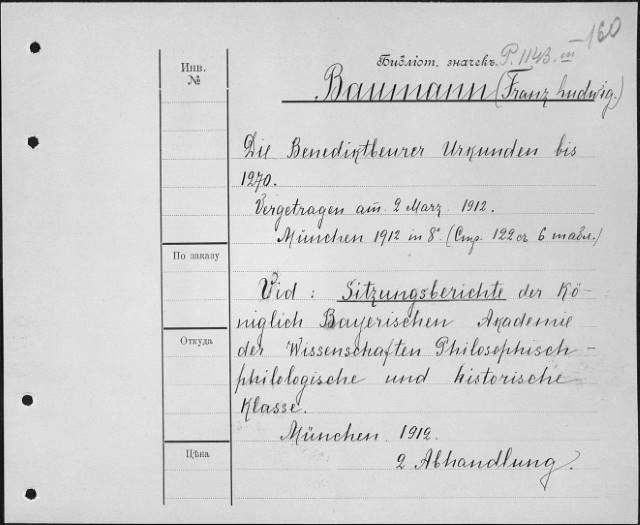 Инв.
№
По заказу
Откуда
Цѣна
Библіот. значекъ. P. 1143. III -160
Baumann (Franz Ludwig.)
Die Benediktbeurer Urkunden bis
1270.
Vorgetragen am 2 März 1912.
München 1912 in 8° (Стр. 122 съ 6 табл.)
Vid : Sitzungsberichte der Kö-
niglich Bayerischen Akademie
der Wissenschaften Philosophisch-
philologische und historische
Klasse.
München 1912.
2 Abhandlung.